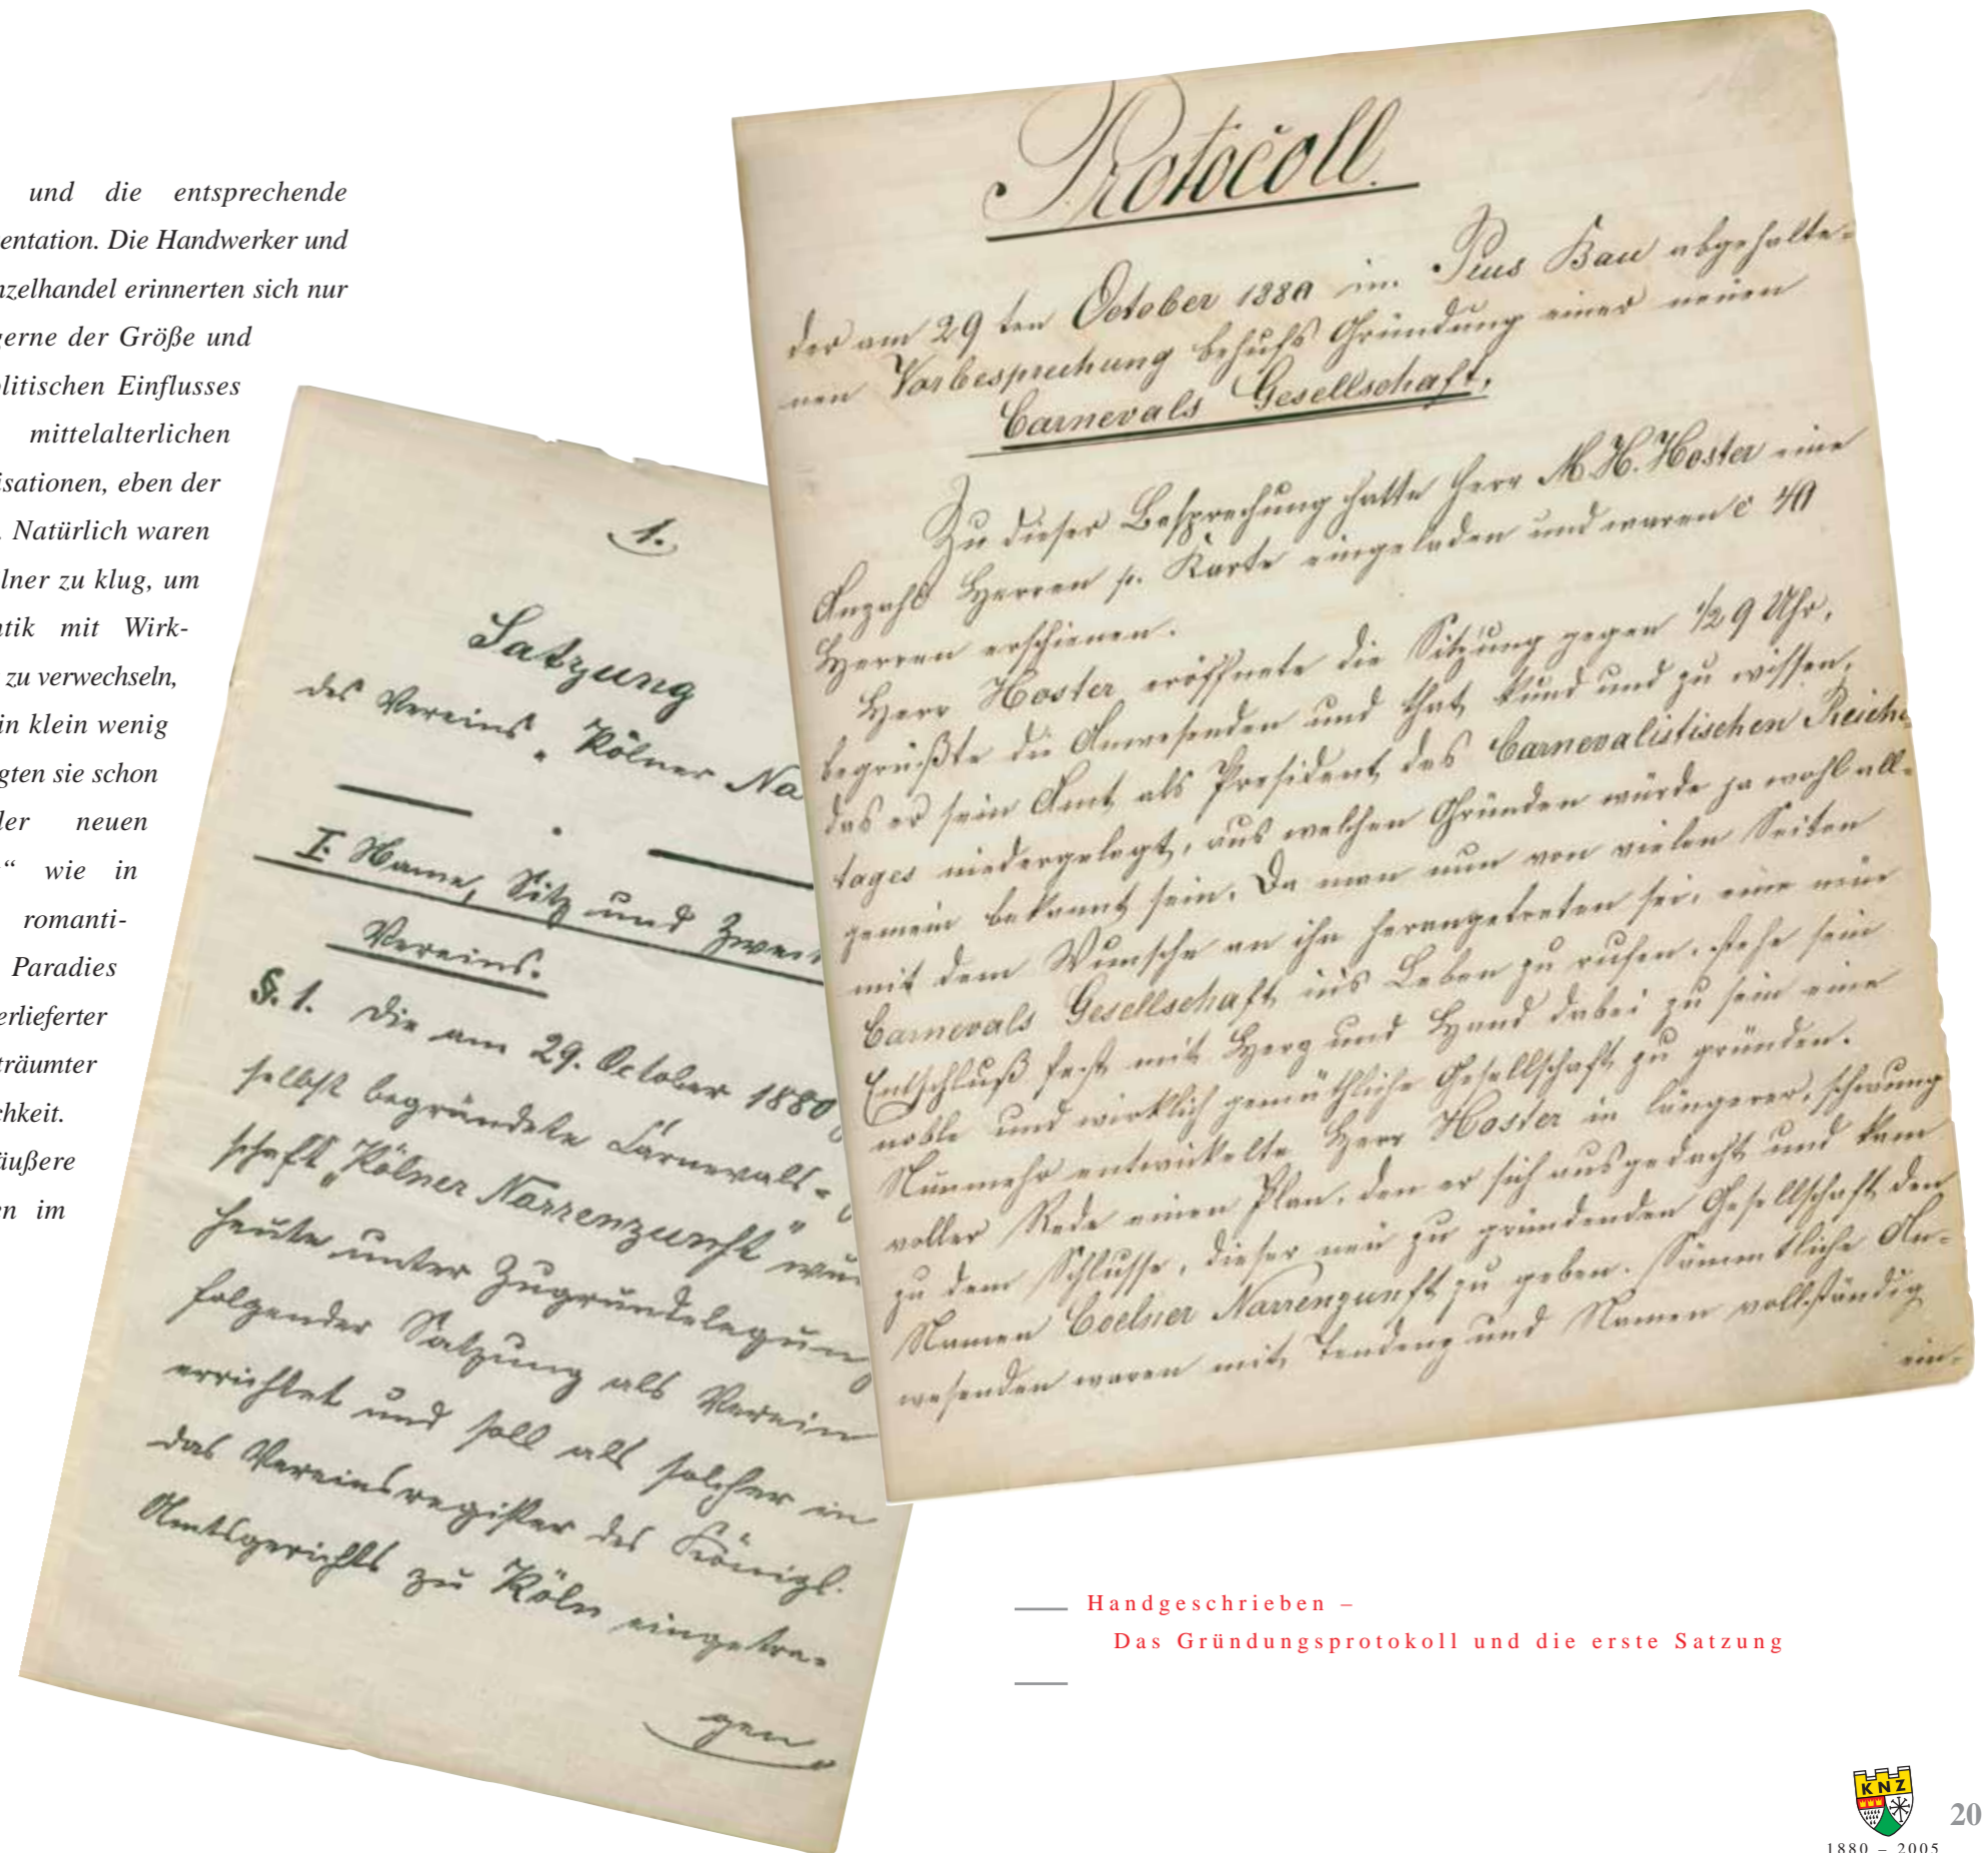 und die entsprechende
entation. Die Handwerker und
nzelhandel erinnerten sich nur
gerne der Größe und
litischen Einflusses
mittelalterlichen
isationen, eben der
. Natürlich waren
lner zu klug, um
ntik mit Wirk-
zu verwechseln,
in klein wenig
gten sie schon
ler neuen
“ wie in
romanti-
Paradies
erlieferter
träumter
chkeit.
äußere
en im
1.
Satzung
des Vereins „Kölner Na
I. Name, Sitz und Zweck
Vereins.
§. 1. Die am 29. October 1880
selbst begründete Carnevals-
schaft „Kölner Narrenzunft“ wu
heute unter Zugrundelegung
folgender Satzung als Verein
errichtet und soll als solcher in
das Vereinsregister des Königl.
Amtsgerichts zu Köln eingetra-
gen
Protocoll.
der am 29ten October 1880 im Pius Bau abgehalte-
nen Vorbesprechung behufs Gründung einer neuen
Carnevals Gesellschaft.
Zu dieser Besprechung hatte Herr M. H. Hoster eine
Anzahl Herren p. Karte eingeladen und waren c 40
Herren erschienen.
Herr Hoster eröffnete die Sitzung gegen 1/2 9 Uhr,
begrüßte die Anwesenden und that kund und zu wissen,
das er sein Amt als President des Carnevalistischen Reichs-
tages niedergelegt, aus welchen Gründen würde ja wohl all-
gemein bekannt sein. Da man nun von vielen Seiten
mit dem Wunsche an ihn herangetreten sei, eine neue
Carnevals Gesellschaft ins Leben zu rufen, stehe sein
Entschluß fest mit Herz und Hand dabei zu sein eine
noble und wirklich gemüthliche Gesellschaft zu gründen.
Nunmehr entwickelte Herr Hoster in längerer, schwung
voller Rede einen Plan, den er sich ausgedacht und kam
zu dem Schlusse, dieser neu zu gründenden Gesellschaft den
Namen Coelner Narrenzunft zu geben. Sämmtliche An-
wesenden waren mit Tendenz und Namen vollständig
ein-
Handgeschrieben –
Das Gründungsprotokoll und die erste Satzung
KNZ
20
1880 – 2005